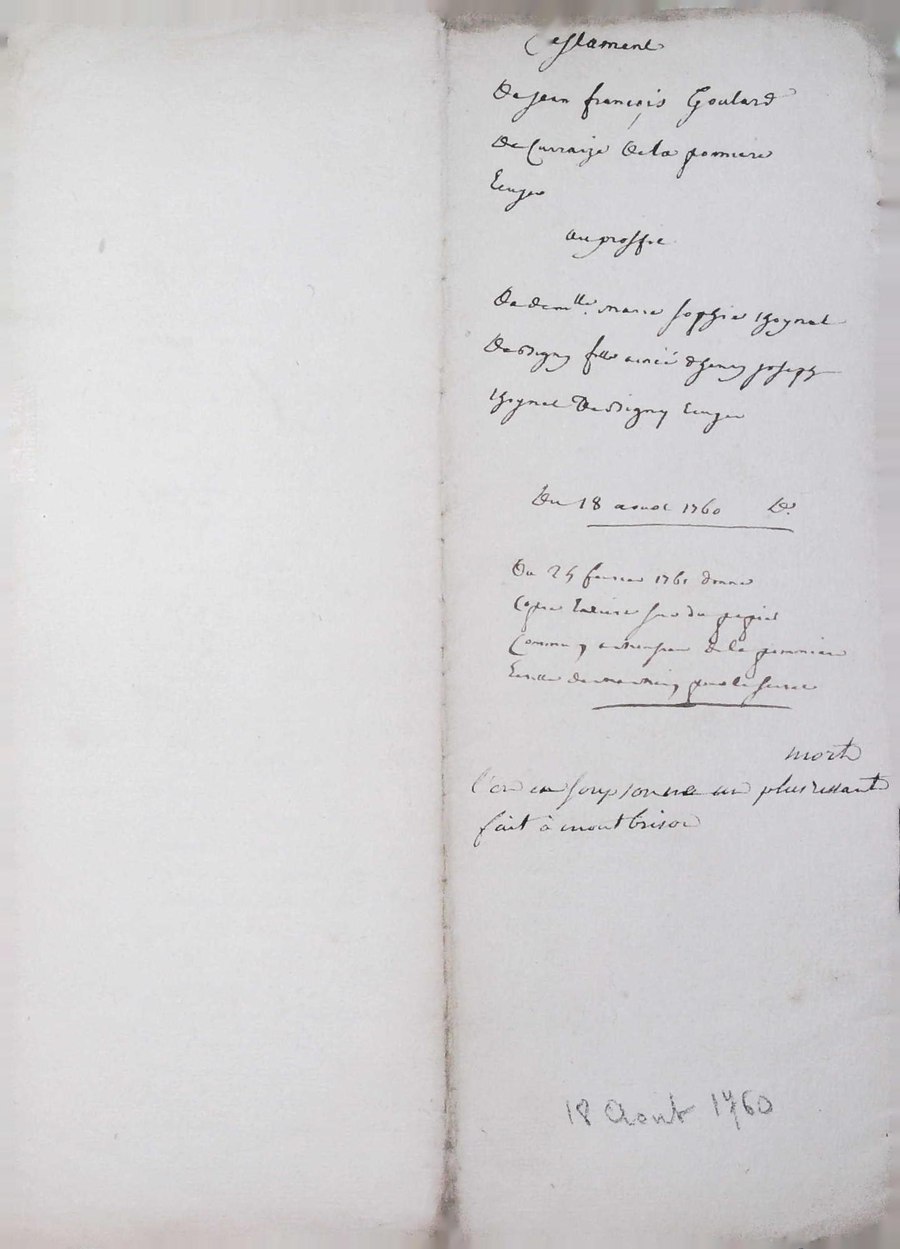 Testament
De jean françois Goulard
De Curraize De la pomiere
Ecuyer
au proffit
De dem.lle marie sophie thoynet
De Bigny fille ainée d'henry joseph
thoynet De Bigny Ecuyer
Du 18 aoust 1760 D.
Du 25 fevrier 1761 donné
Copie Entiere sur du papier
Commun a monsieur de la pommiere
mort
fait à montbrison
18 Aout 1760